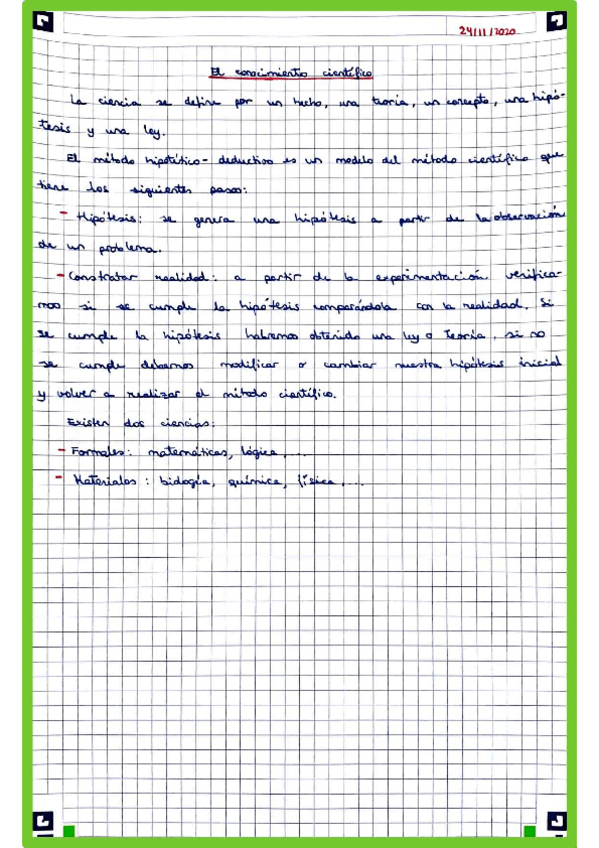 24/11/2020
El conocimiento científico
La ciencia se define por un hecho, una teoría, un concepto, una hipó-
tesis y una ley.
El método hipotético-deductivo es un modelo del método científico que
tiene los siguientes pasos:
- Hipótesis: se genera una hipótesis a partir de la observación
de un problema.
- Constratar realidad: a partir de la experimentación verifica-
mos si se cumple la hipótesis comparándola con la realidad. Si
se cumple la hipótesis habremos obtenido una ley o Teoría, si no
se cumple debemos modificar o cambiar nuestra hipótesis inicial
y volver a realizar el método científico.
Existen dos ciencias:
- Formales: matemáticas, lógica,...
- Materiales: biología, química, física,...